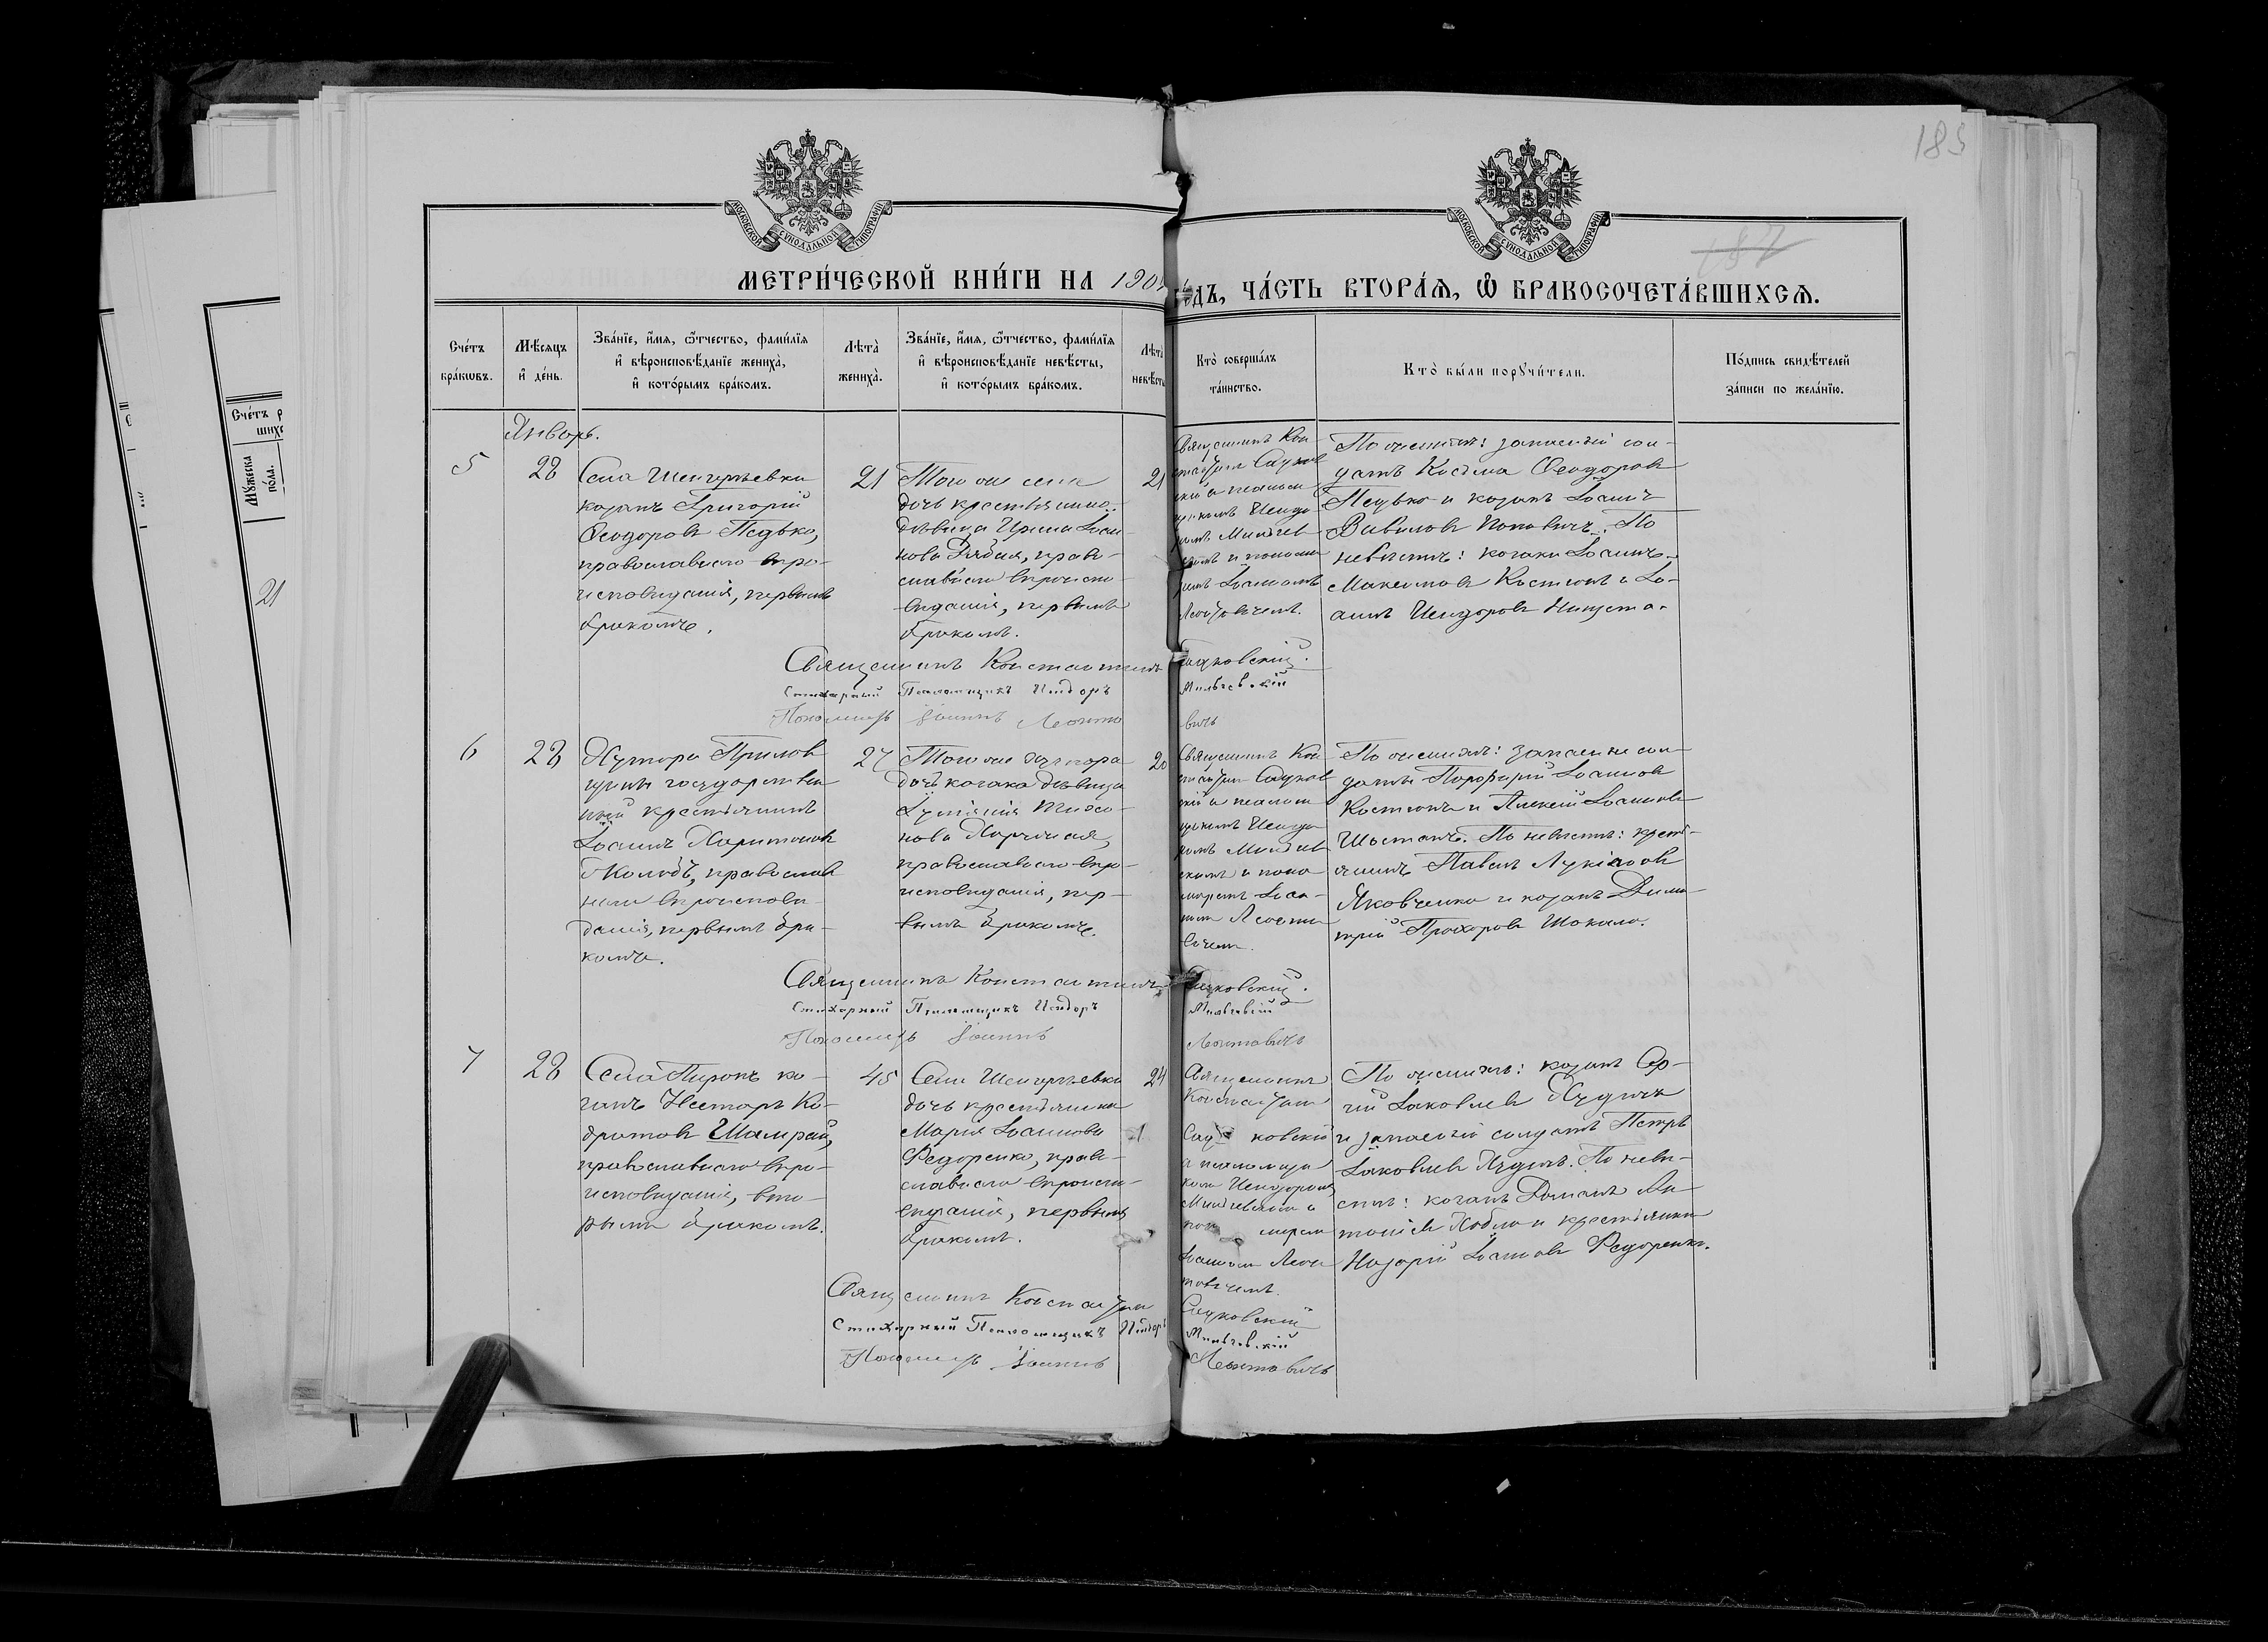 183
МОСКОВСКОЙ СѴНОДАЛЬНОЙ ТИПОГРАФІИ
МОСКОВСКОЙ СѴНОДАЛЬНОЙ ТИПОГРАФІИ
МЕТРИ́ЧЕСКОЙ КНИ́ГИ НА 190
ГО́ДЪ, ЧА́СТЬ ВТОРА́Я, Ѽ БРАКОСОЧЕТА́ВШИХСЯ.
Сче́тъ бра́кѡвъ.
Мѣ́сяцъ и҆ де́нь.
Зва́нїе, и҆́мя, ѻ҆́тчество, фами́лїя
и҆ вѣроисповѣ́данїе жениха̀,
и҆ кото́рымъ бра́комъ.
Лѣта̀ жениха̀.
Зва́нїе, и҆́мя, ѻ҆́тчество, фами́лїя
и҆ вѣроисповѣ́данїе невѣ́сты,
и҆ кото́рымъ бра́комъ.
Лѣта̀ невѣ́сты
Кто̀ соверша́лъ
та́инство.
Кто̀ бы́ли порꙋчи́тели.
По́дпись свидѣ́телей
за́писи по жела́нїю.
Сче́тъ р
шихс
Мꙋ́жеска
по́ла.
21
Январь.
5
28
Села
козакъ Григорій
Ѳеодоровъ Педько,
православнаго вѣро-
исповѣданія, первымъ
бракомъ.
21
Того же села
дочь крестьянина
дѣвица Ирина Іоан-
нова Рябая, право-
славнаго вѣроиспо-
вѣданія, первымъ
бракомъ.
21
Священникъ Кон-
стантинъ Садков-
скій съ псалом-
щикомъ Исидо-
ромъ
и понома-
ремъ Іоанномъ
Леонтовичемъ.
По женихѣ: запасный сол-
датъ Косьма Ѳеодоровъ
Педько и козакъ Іоаннъ
Вавиловъ Поповичъ. По
невѣстѣ: козаки Іоаннъ
Максимовъ Костюкъ и Іо-
аннъ Исидоровъ
Священникъ Константинъ Садковскій.
Стихарный Псаломщикъ Исидоръ
Пономарь Іоаннъ Леонтовичъ
6
28
Хутора
государствен-
ный крестьянинъ
Іоаннъ Харитоновъ
православ-
наго вѣроисповѣ-
данія, первымъ бра-
комъ.
27
Того же хутора
дочь козака дѣвица
православнаго вѣро-
исповѣданія, пер-
вымъ бракомъ.
20
Священникъ Кон-
стантинъ Садков-
скій съ псалом-
щикомъ Исидо-
ромъ
и поно-
маремъ Іоан-
номъ Леонто-
вичемъ.
По женихѣ: запасные сол-
даты Порфирій Іоанновъ
Костюкъ и Алексій Іоанновъ
Шостакъ. По невѣстѣ: кресть-
янинъ Павелъ Лукіановъ
Яковченко и козакъ Дими-
трій Прохоровъ Шокало.
Священникъ Константинъ Садковскій.
Стихарный Псаломщикъ Исидоръ
Пономарь Іоаннъ Леонтовичъ
7
28
Села Пирогъ ко-
закъ Несторъ Ко-
дратовъ Шамрай,
православнаго вѣро-
исповѣданія, вто-
рымъ бракомъ.
45
Села
дочь крестьянина
Марія Іоаннова
Федоренко, право-
славнаго вѣроиспо-
вѣданія, первымъ
бракомъ.
24
Священникъ
Константинъ
Садковскій
съ псаломщи-
комъ Исидоромъ
и
пономаремъ
Іоанномъ Леон-
товичемъ.
По женихѣ: козакъ Сер-
гій Іаковлевъ
и запасный солдатъ Петръ
Іаковлевъ По невѣ-
стѣ: козакъ Ан-
тоніевъ и крестьянинъ
Назарій Іоанновъ Федоренко.
Священникъ Константинъ Садковскій
Стихарный Псаломщикъ Исидоръ
Пономарь Іоаннъ Леонтовичъ